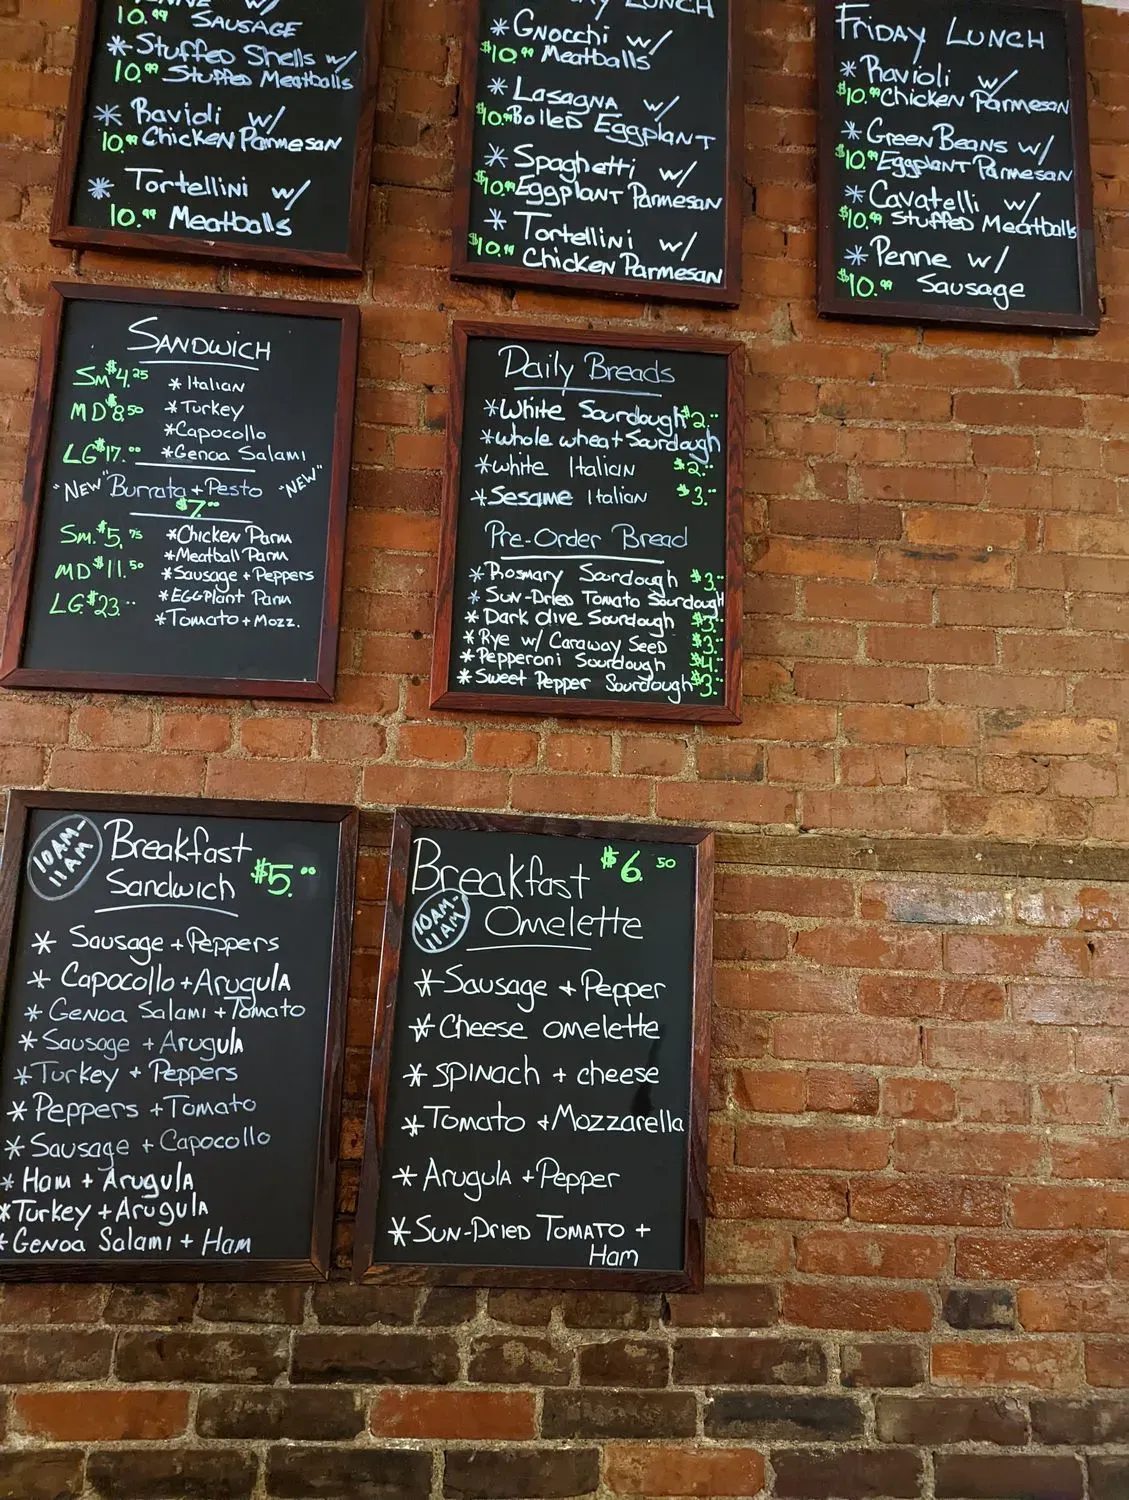 10.99 SAUSAGE
* Stuffed Shells w/
10.99 Stuffed Meatballs
* Ravioli w/
10.99 Chicken Parmesan
* Tortellini w/
10.99 Meatballs
LUNCH
* Gnocchi w/
$10.99 Meatballs
* Lasagna w/
$10.99 Rolled Eggplant
* Spaghetti w/
$10.99 Eggplant Parmesan
* Tortellini w/
$10.99 Chicken Parmesan
FRIDAY LUNCH
* Ravioli w/
$10.99 Chicken Parmesan
* Green Beans w/
$10.99 Eggplant Parmesan
* Cavatelli w/
$10.99 Stuffed Meatballs
* Penne w/
$10.99 Sausage
SANDWICH
Sm $4.25 * Italian
MD $8.50 * Turkey
* Capocollo
LG $17.00 * Genoa Salami
"NEW" Burrata + Pesto "NEW"
$7.00
Sm. $5.75 * Chicken Parm
* Meatball Parm
MD $11.50 * Sausage + Peppers
LG $23.00 * EGGPlant Parm
* Tomato + Mozz.
Daily Breads
* White Sourdough $2.00
* whole wheat Sourdough
* white Italian $2.00
* Sesame Italian $3.00
Pre-Order Bread
* Rosmary Sourdough $3.00
* SUN-DRIED Tomato Sourdough
* Dark olive Sourdough $3.00
* Rye w/ Caraway SeeD $3.00
* Pepperoni Sourdough $4.00
* Sweet Pepper Sourdough $3.00
10AM-
11AM
Breakfast
Sandwich $5.00
* Sausage + Peppers
* Capocollo + Arugula
* Genoa Salami + Tomato
* Sausage + Arugula
* Turkey + Peppers
* Peppers + Tomato
* Sausage + Capocollo
* Ham + Arugula
* Turkey + Arugula
* Genoa Salami + Ham
Breakfast $6.50
10AM-
11AM
Omelette
* Sausage + Pepper
* Cheese omelette
* SPINach + cheese
* Tomato + Mozzarella
* Arugula + Pepper
* SUN-DRIED TOMATO +
Ham